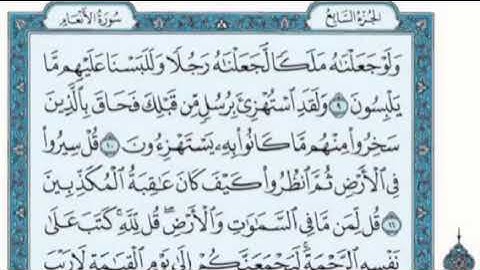 الجزء السابع
سورة الأنعام
وَلَوْ جَعَلْنَٰهُ مَلَكًا لَّجَعَلْنَٰهُ رَجُلًا وَلَلَبَسْنَا عَلَيْهِم مَّا
يَلْبِسُونَ ٩ وَلَقَدِ ٱسْتُهْزِئَ بِرُسُلٍ مِّن قَبْلِكَ فَحَاقَ بِٱلَّذِينَ
سَخِرُوا۟ مِنْهُم مَّا كَانُوا۟ بِهِۦ يَسْتَهْزِءُونَ ١٠ قُلْ سِيرُوا۟
فِى ٱلْأَرْضِ ثُمَّ ٱنظُرُوا۟ كَيْفَ كَانَ عَٰقِبَةُ ٱلْمُكَذِّبِينَ
١١ قُل لِّمَن مَّا فِى ٱلسَّمَٰوَٰتِ وَٱلْأَرْضِ ۖ قُل لِّلَّهِ ۚ كَتَبَ عَلَىٰ
نَفْسِهِ ٱلرَّحْمَةَ ۚ لَيَجْمَعَنَّكُمْ إِلَىٰ يَوْمِ ٱلْقِيَٰمَةِ لَا رَيْبَ